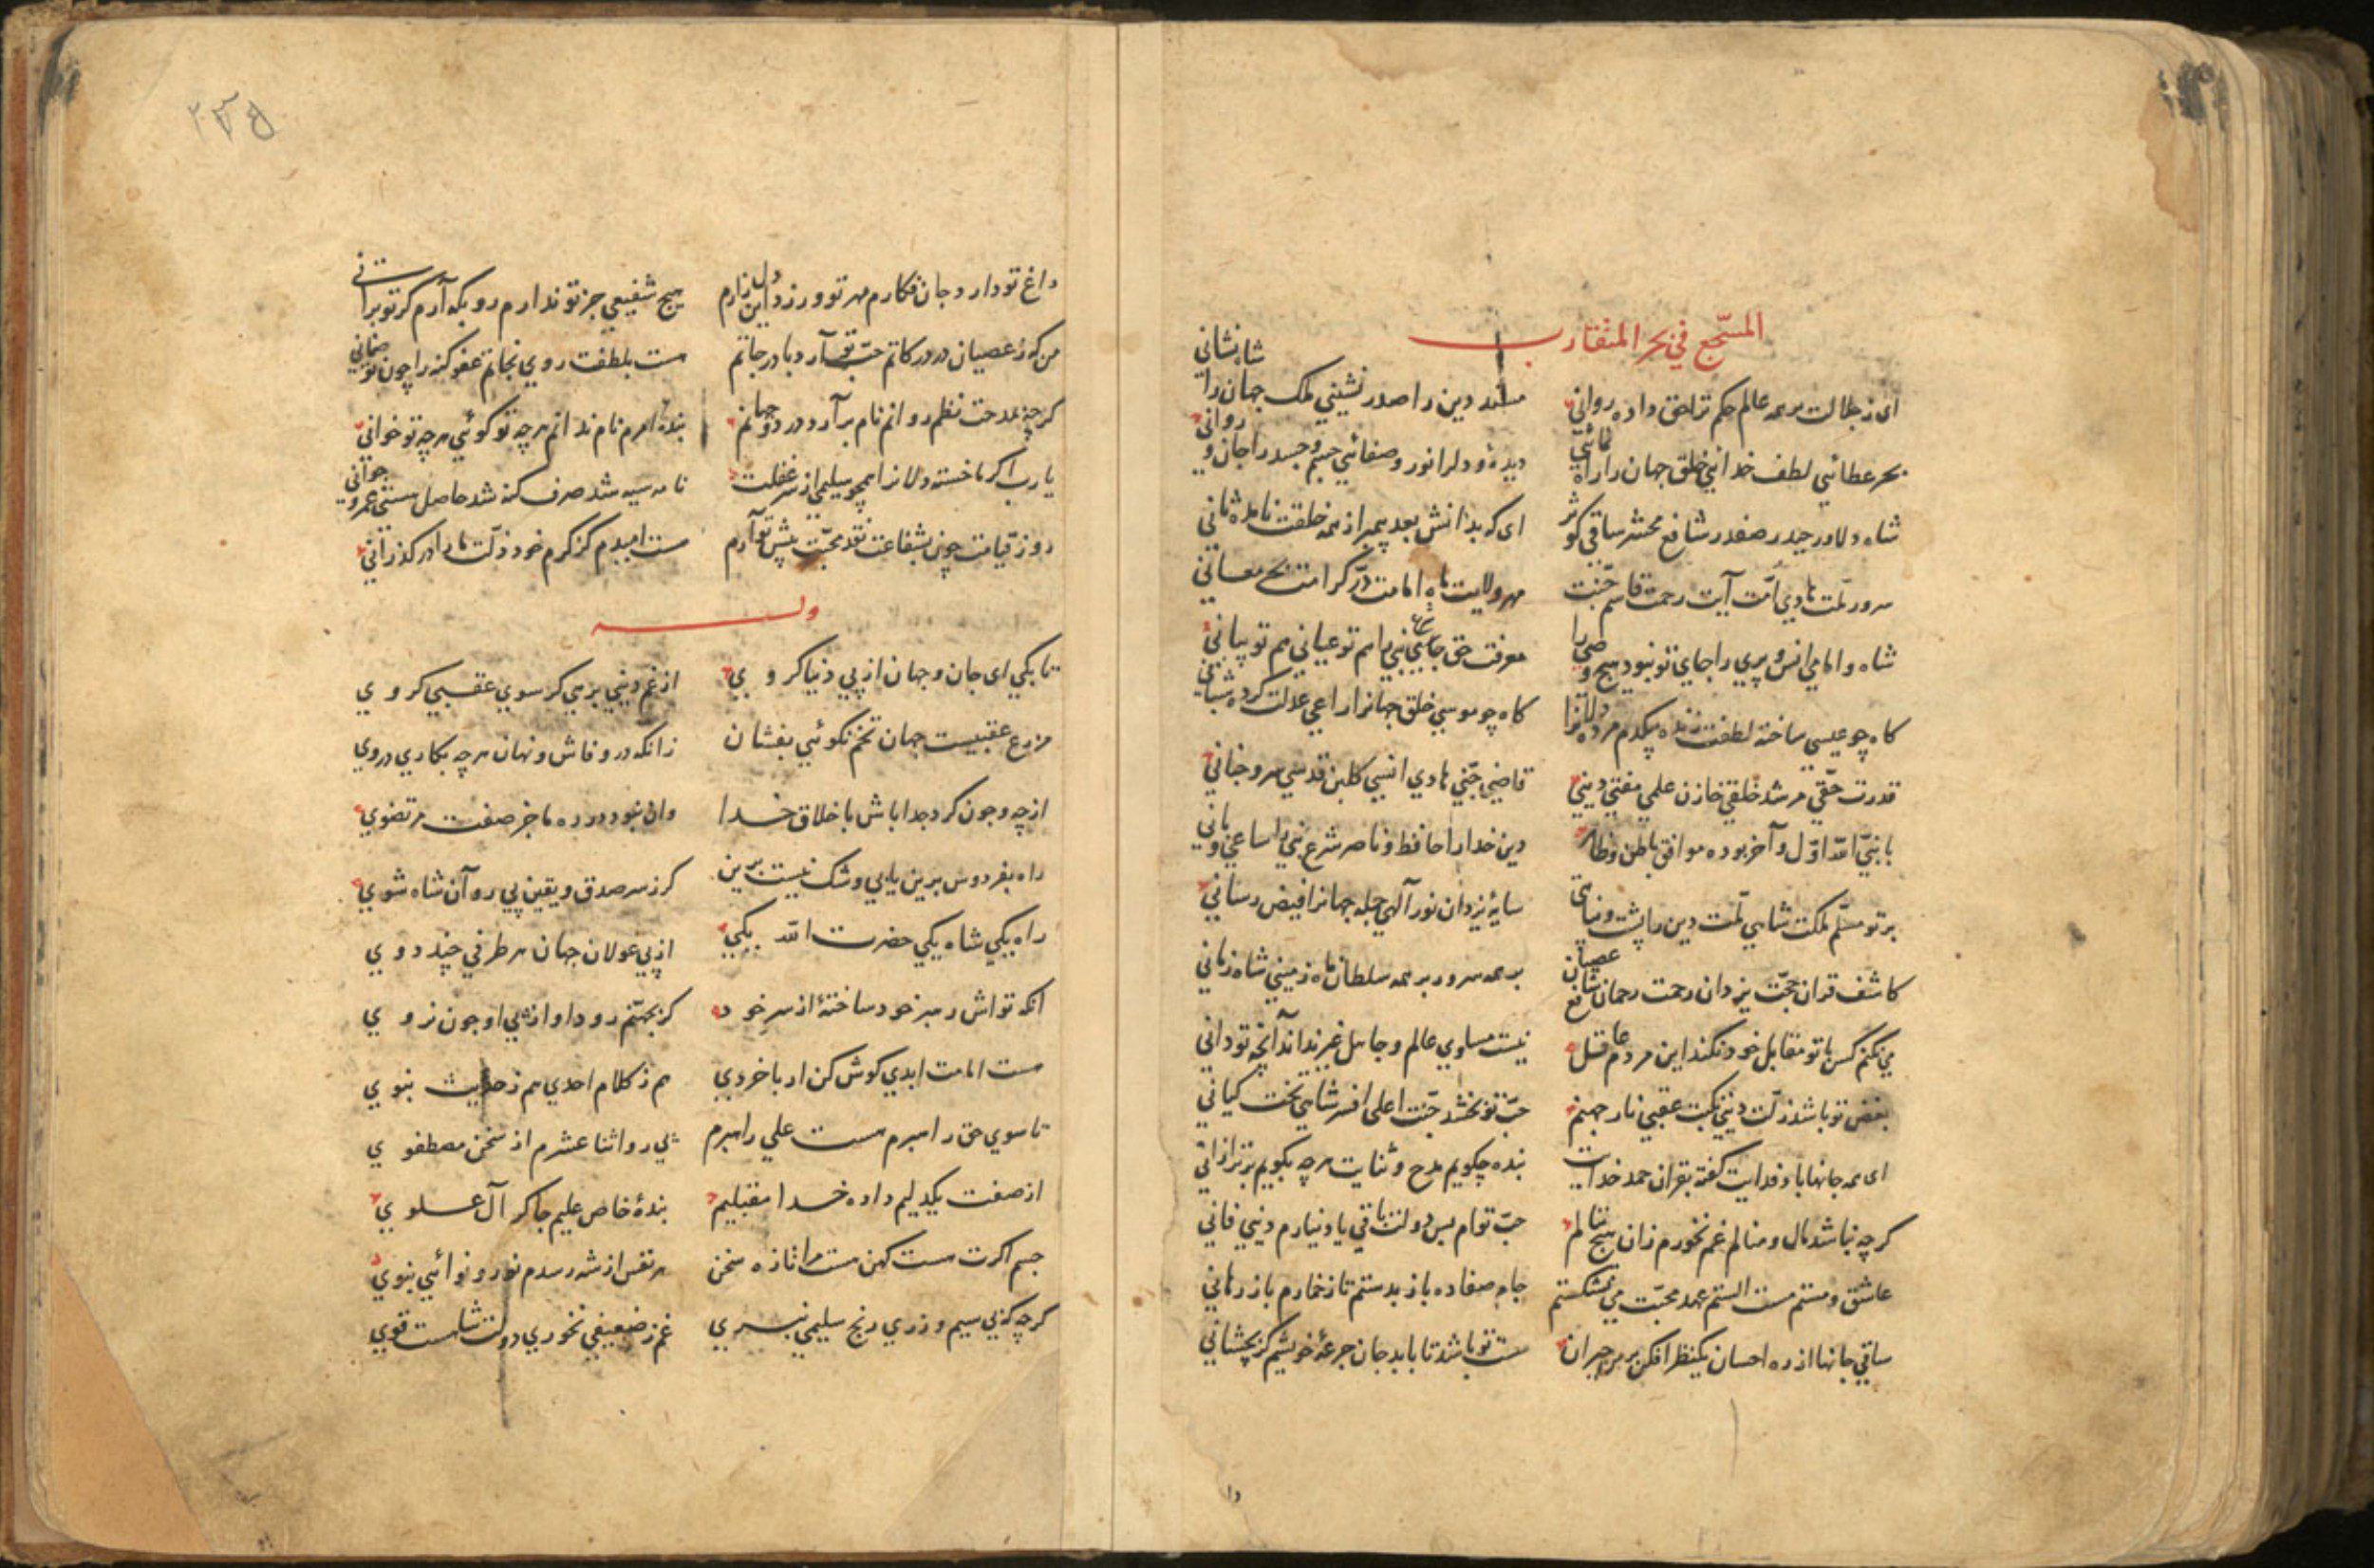 المسجع في بحر المتقارب
ای ز جلالت بر همه عالم حکم ترا حق داده روانی مسند دین را صدر نشینی ملک جهان را شاه نشانی
بحر عطائی لطف خدائی خلق جهان را راه نمائی دیده و دلرا نور و صفائی جسم و جسد را جان و روانی
شاه دلاور حیدر صفدر شافع محشر ساقی کوثر ای که بدانش بعد پیمبر از همه خلقت نامده ثانی
سرور ملت هادی امت آیت رحمت قاسم جنت مهر ولایت ماه امامت در کرامت بحر معانی
شاه و امامی انس و پری را جای تو نبود هیچ وصی را معرفت حق جای نبی را هم تو عیانی هم تو بیانی
کاه چو عیسی ساخته لطفت زنده بیکدم مرده دلانرا کاه چو موسی خلق جهانرا راعی عدلت کرده شبانی
قدرت حقی مرشد خلقی خازن علمی مفتی دینی قاضی جنی هادی انسی کلبن قدسی سرو جنانی
با نبی الله اول و آخر بوده موافق باطن و ظاهر دین خدا را حافظ و ناصر شرع نبی را ساعی و بانی
بر تو مسلم ملکت شاهی ملت دین را پشت و پناهی سایهٔ یزدان نور آلهی جمله جهانرا فیض رسانی
کاشف قران حجت یزدان رحمت رحمان شافع عصیان بر همه سرور بر همه سلطان ماه زمینی شاه زمانی
می نکنم کس با تو مقابل خود نکند این مردم عاقل نیست مساوی عالم و جاهل غیر نداند آنچه تو دانی
بغض تو باشد زلت دینی نکبت عقبی نار جهنم حب تو بخشد جنت اعلی افسر شاهی تخت کیانی
ای همه جانها باد فدایت کفته بقران حمد خدایت بنده چکویم مدح و ثنایت هر چه بکویم برتر ازانی
کرچه نباشد مال و منالم غم نخورم زان هیچ ننالم حب توام بس دولت باقی یاد نیارم دنیی فانی
عاشق و مستم مست الستم عهد محبت می نشکستم جام صفا ده باز بدستم تا ز خمارم باز رهانی
ساقی جانها از ره احسان یکنظر افکن بر من حیران مست تو باشد تا بابد جان جرعهٔ خویشم کر بچشانی
دا
۲۳۵
داغ تو دارد جان فکارم مهر تو ورزد این دل زارم هیچ شفیعی جز تو ندارم رو بکه آرم کر تو برانی
من که ز عصیان در درکاتم حب تو آرد با درجاتم هست بلطفت روی نجاتم عفو کنه را چون تو ضمانی
کرچه بمدحت نظم روانم نام برآرد در دو جهانم بندهٔ امرم نام ندانم هر چه تو کوئی هر چه تو خوانی
یا رب اکر ما خسته دلانرا همچو سلیمی از سر غفلت نامه سیه شد صرف کنه شد حاصل هستی عمر و جوانی
روز قیامت چون بشفاعت نقد محبت پیش تو آرم هست امیدم کز کرم خود زلت ما را در کذرانی
وله
تا بکی ای جان و جهان از پی دنیا کروی از غم دنیی برهی کر سوی عقبی کروی
مزرع عقبیست جهان تخم نکوئی بفشان زانکه درو فاش و نهان هر چه بکاری دروی
از چه و چون کرد جدا باش باخلاق خدا وان نبود در ره ما جز صفت مرتضوی
راه بفردوس برین یابی و شک نیست برین کر ز سر صدق و یقین پی رو آن شاه شوی
راه یکی شاه یکی حضرت الله یکی از پی غولان جهان هر طرفی چند دوی
آنکه تواش رهبر خود ساختهٔ از سر خود کر بجهنم رود او از پی او چون نروی
هست امامت ابدی کوش کن ار باخردی هم ز کلام احدی هم ز حدیث نبوی
تا سوی حق راهبرم هست علی راهبرم پی رو اثنا عشرم از سخن مصطفوی
از صفت یکدلیم داده خدا مقبلیم بندهٔ خاص علیم چاکر آل علوی
جسم اکرت هست کهن هست مرا تازه سخن هر نفس از شه رسدم نور و نوائی بنوی
کرچه که بی سیم و زری رنج سلیمی نبری غم ز ضعیفی نخوری دولت شاهست قوی